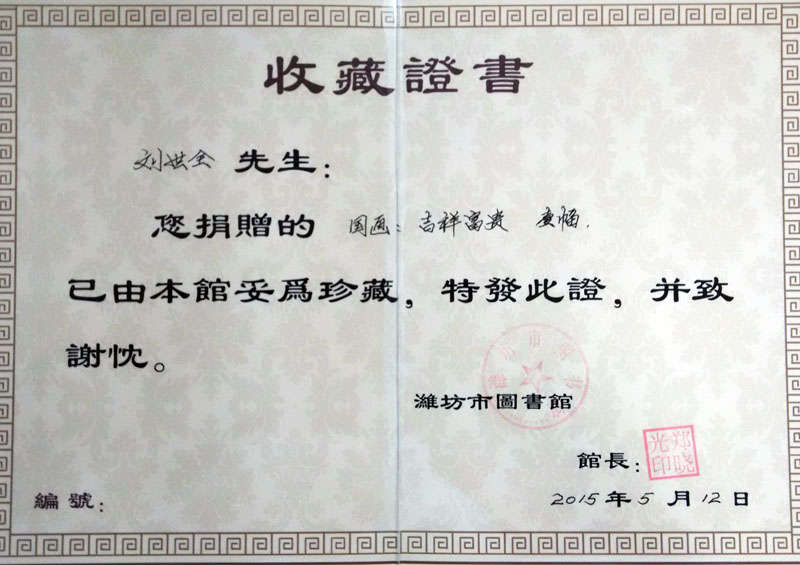 收藏證書
刘世全 先生：
您捐贈的 国画：吉祥富贵 壹幅.
已由本館妥爲珍藏，特發此證，并致
謝忱。
潍坊市图书馆
濰坊市圖書館
館長：
郑晓光印
編號：
2015年5月12日